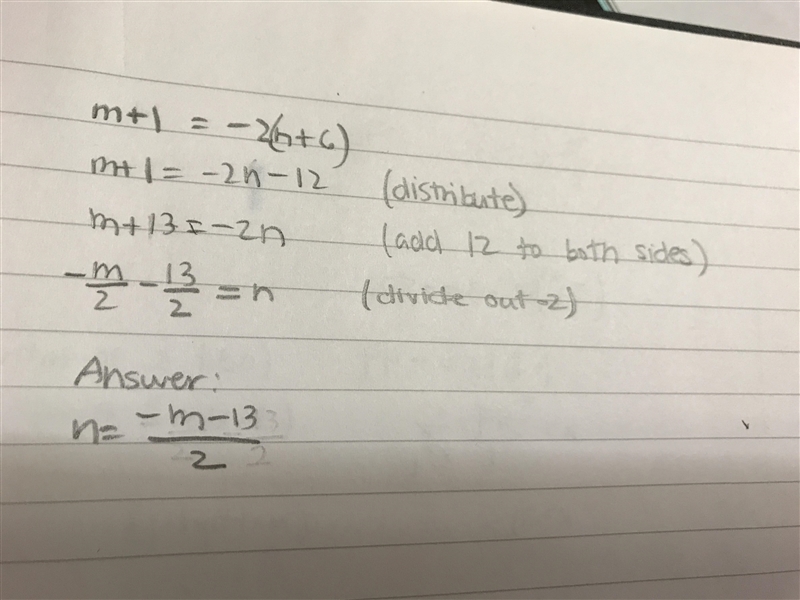 m+1 = -2(n+6)
m+1 = -2n-12 (distribute)
m+13 = -2n (add 12 to both sides)
-m/2 - 13/2 = n (divide out -2)
Answer:
n = (-m-13)/2